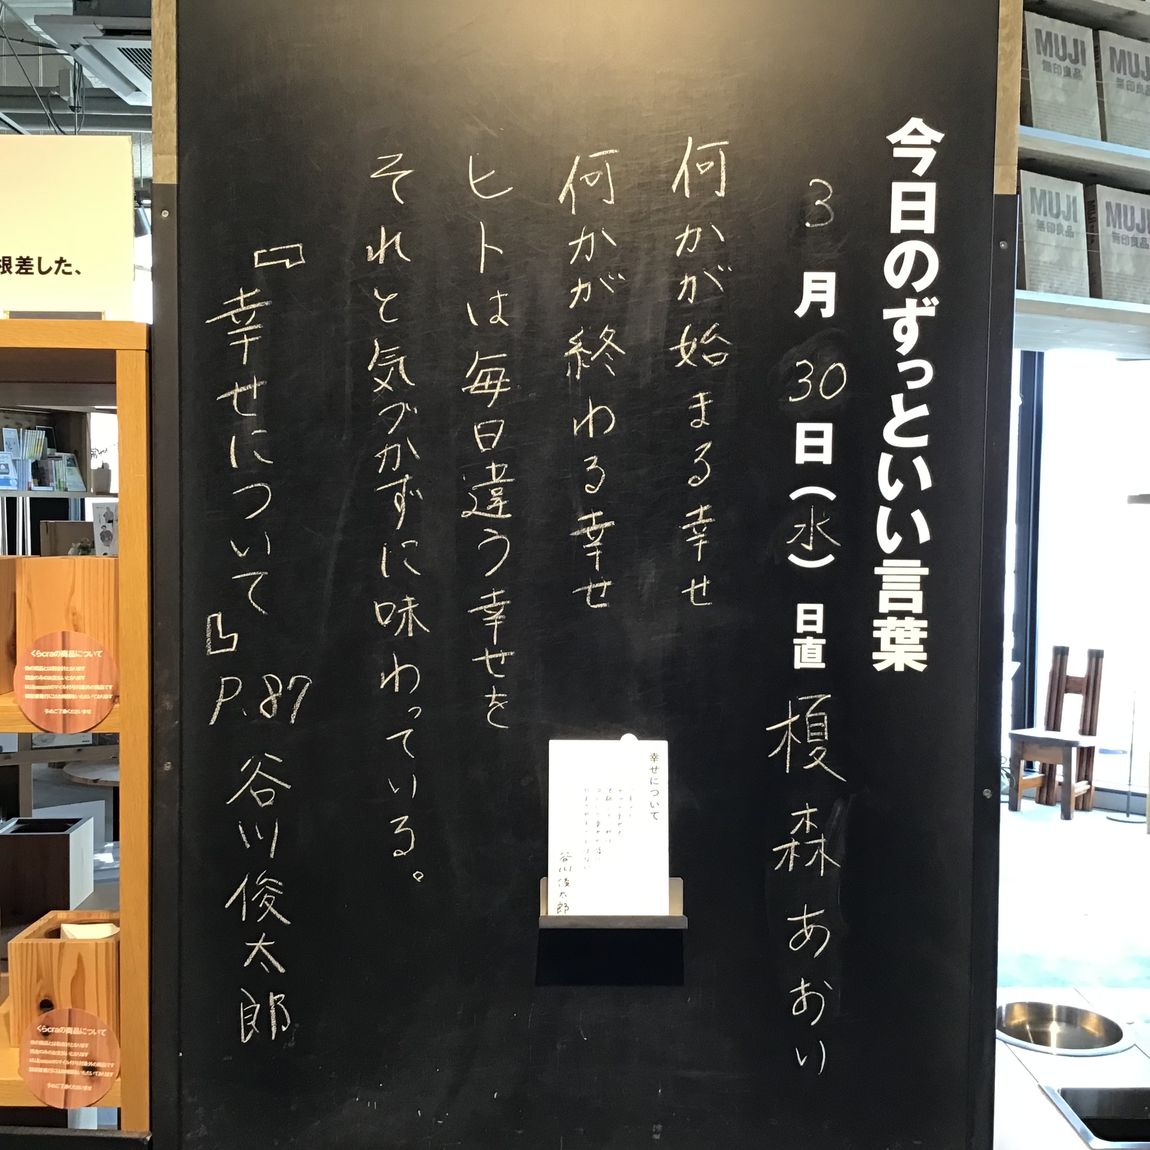 今日のずっといい言葉
3月30日(水) 日直 榎森あおい
何かが始まる幸せ
何かが終わる幸せ
ヒトは毎日違う幸せを
それと気づかずに味わっている。
『幸せについて』P.87 谷川俊太郎
幸せについて
谷川俊太郎
根差した、
くらcraの商品について
くらcraの商品について
MUJI
無印良品
MUJI
無印良品
MUJI
無印良品
MUJI